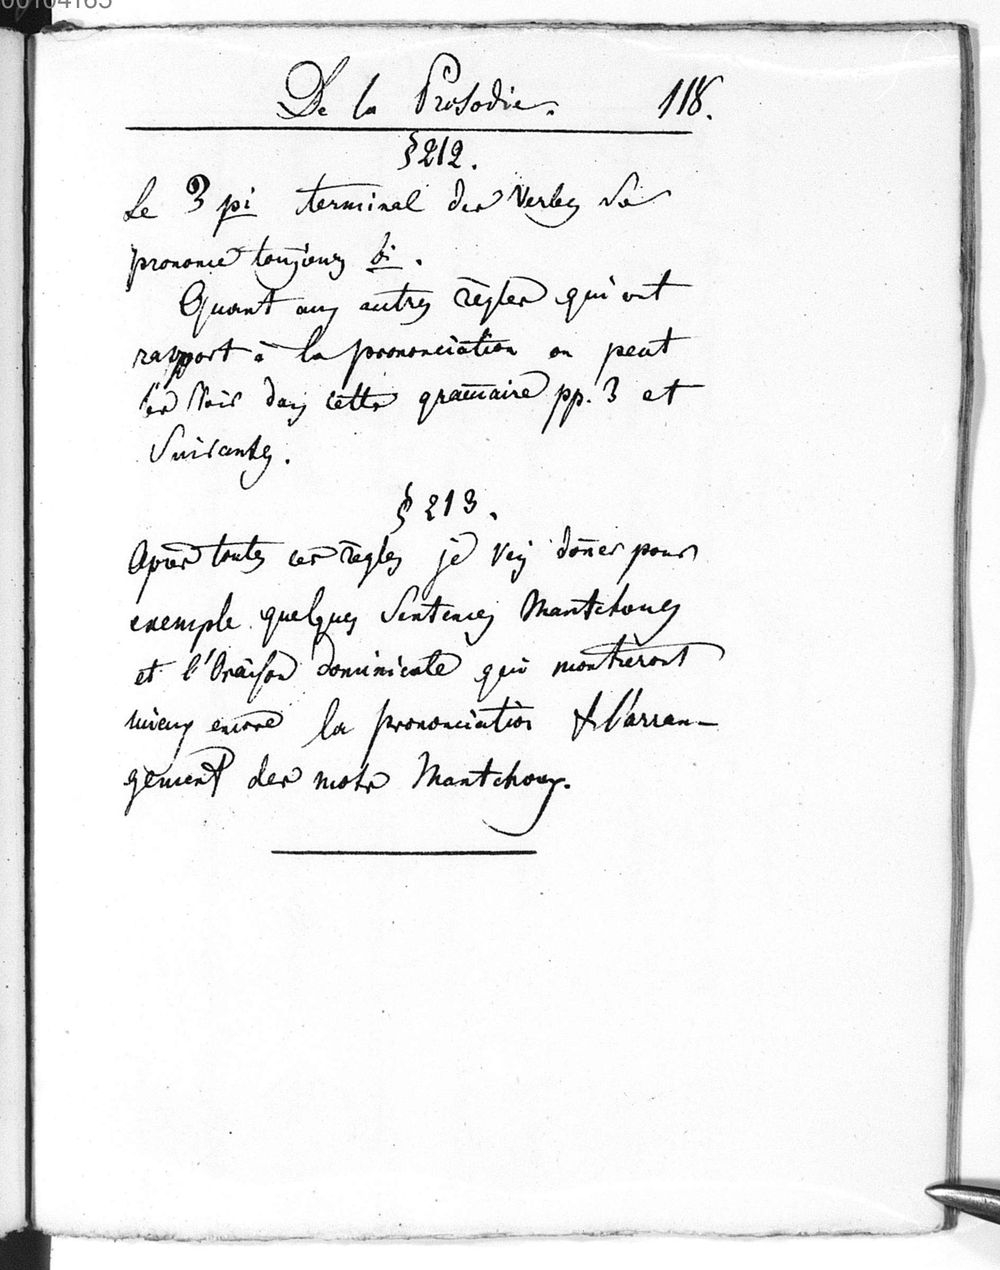 00104165
De la Prosodie. 118.
§ 212.
Le pi terminal des Verbes se
prononce toujours bi.
Quant aux autres règles qui ont
rapport à la prononciation on peut
les Voir dans cette gram̄aire pp. 3 et
Suivantes.
§ 213.
Après toutes ces règles je vais don̄er pour
exemple quelques Sentences Mantchoues
et l'Oraison dominicale qui montreront
mieux encore la prononciation & l'arran-
gement des mots Mantchoux.